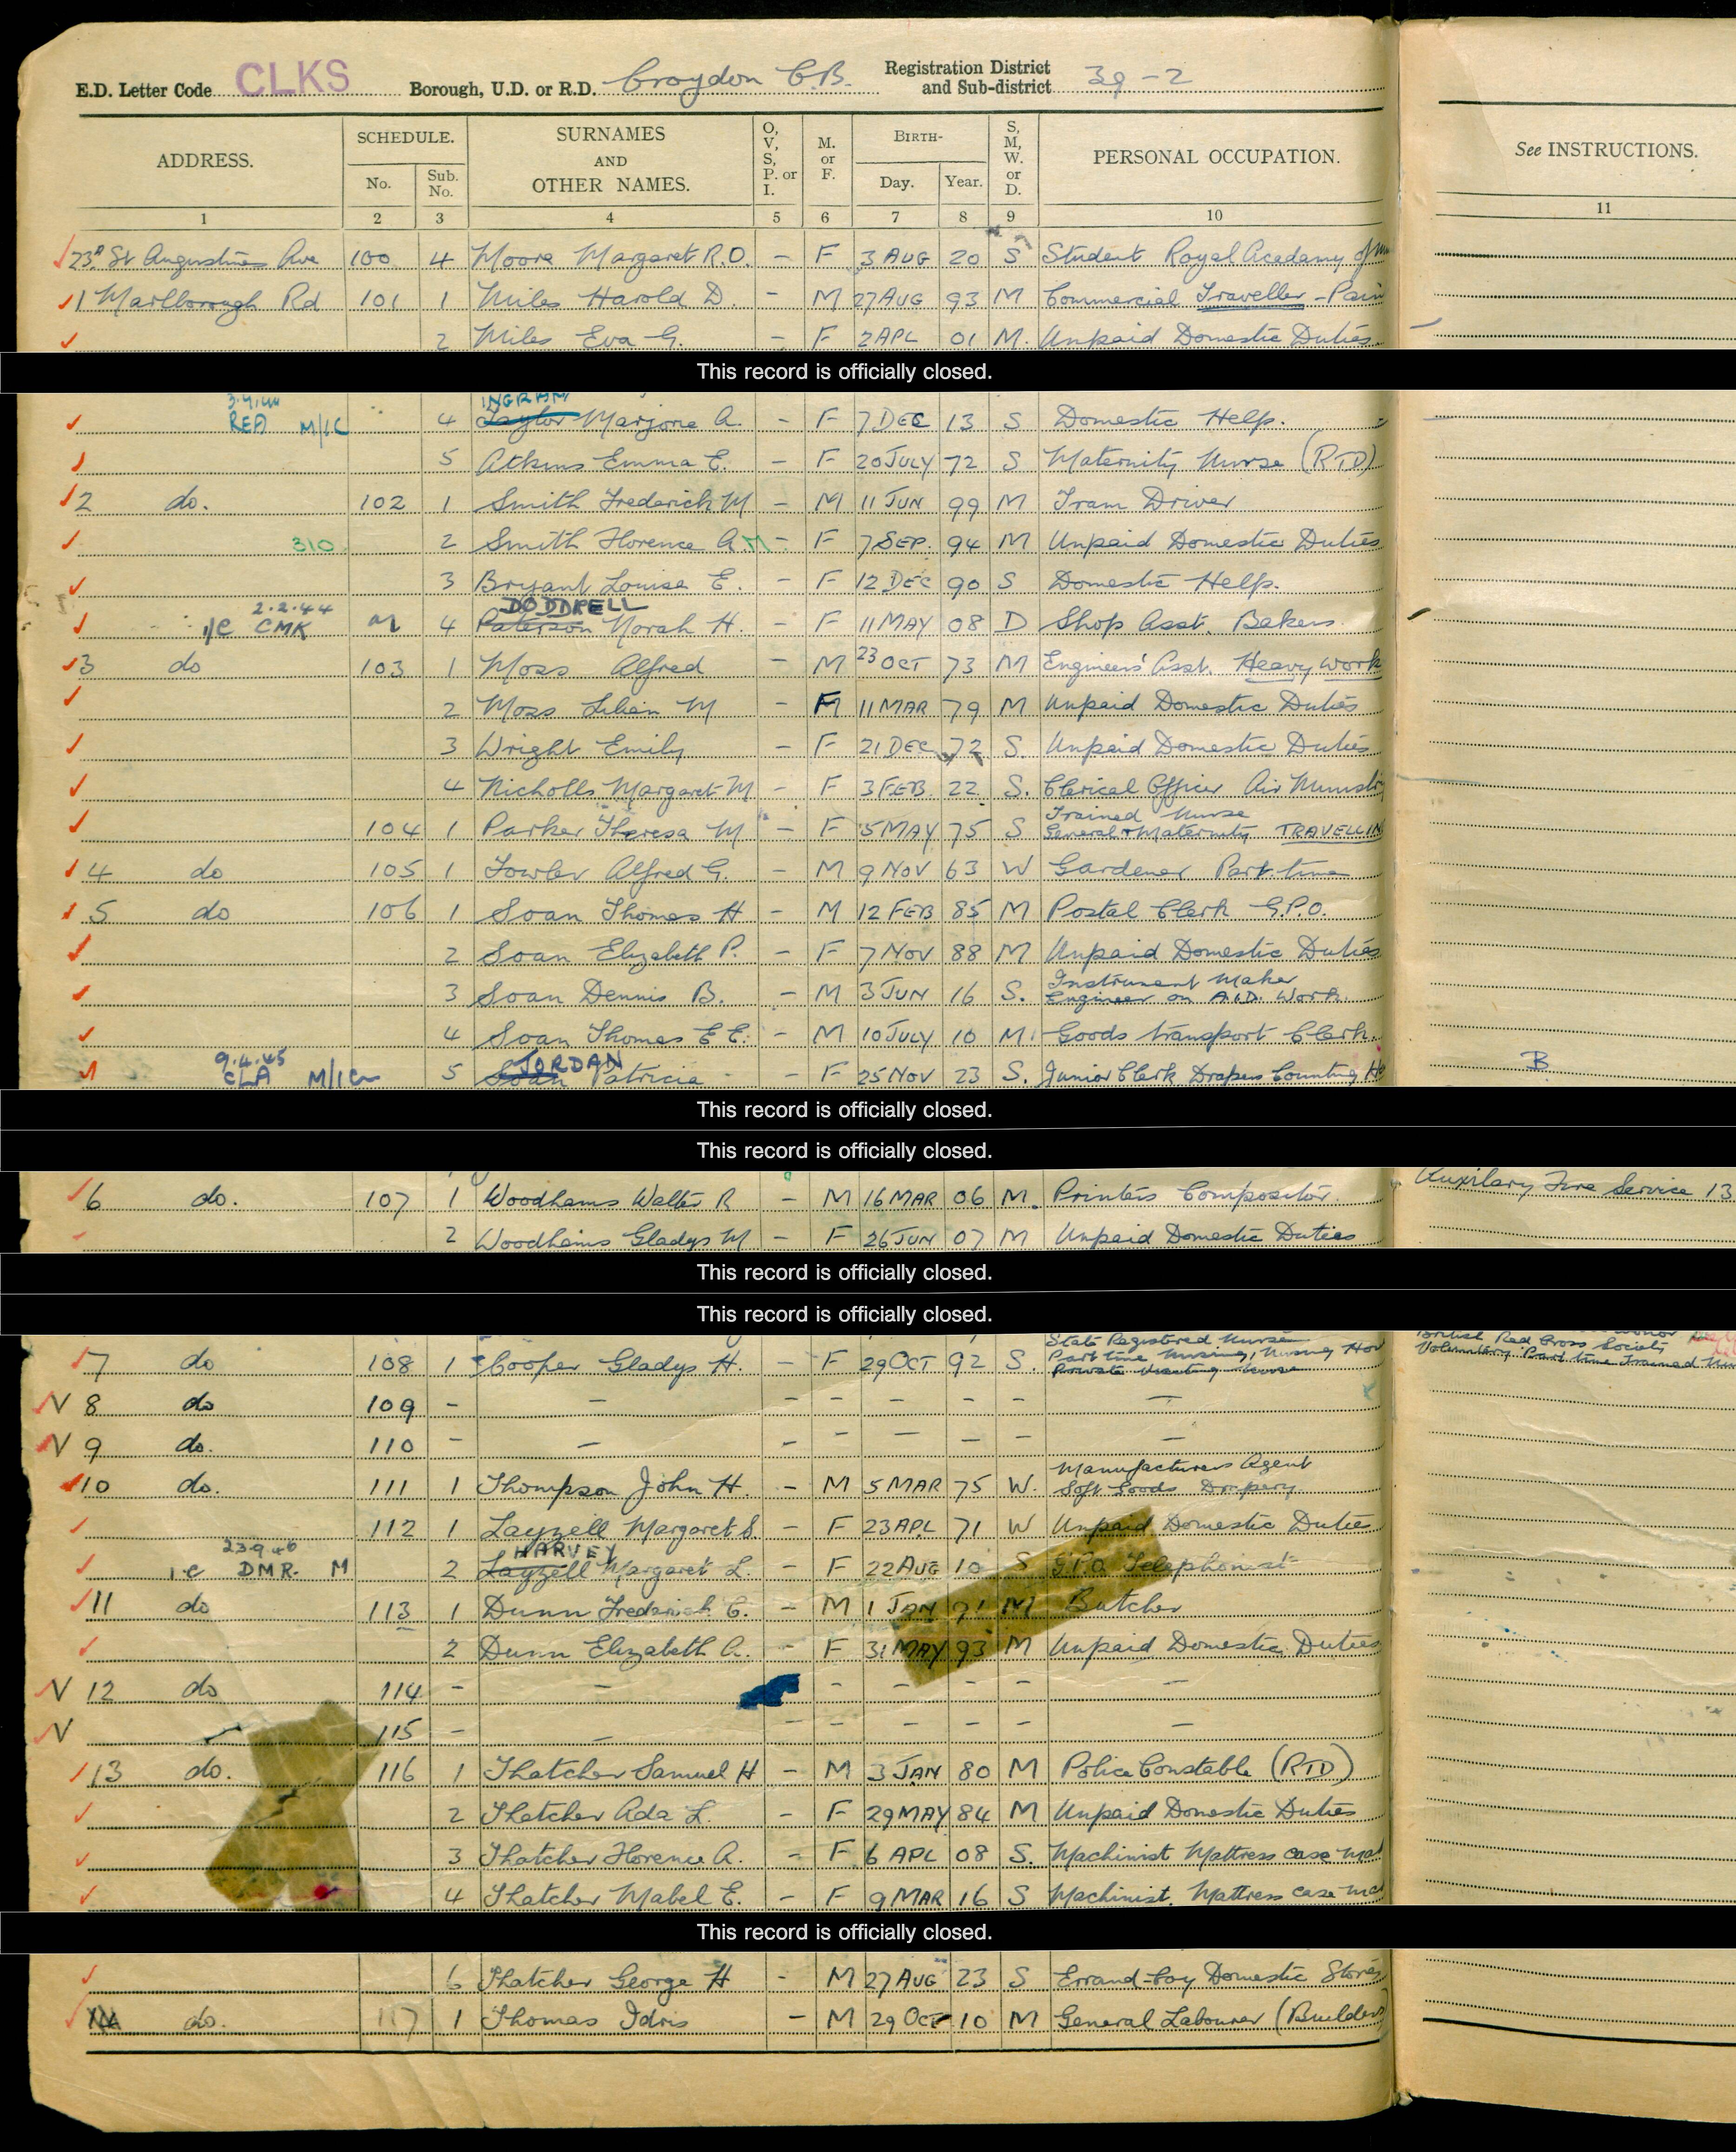 E.D. Letter Code CLKS Borough, U.D. or R.D. Croydon C.B. Registration District and Sub-district 39-2
ADDRESS. SCHEDULE. No. Sub. No. SURNAMES AND OTHER NAMES. O, V, S, P. or I. M. or F. BIRTH- Day. Year. S, M, W. or D. PERSONAL OCCUPATION. See INSTRUCTIONS.
1 2 3 4 5 6 7 8 9 10 11
23A St Augustines Ave 100 4 Moore Margaret R.O. - F 3 AUG 20 S Student Royal Acedamy of
1 Marlborough Rd 101 1 Miles Harold D. - M 27 AUG 93 M Commercial Traveller - Pain
2 Miles Eva G. - F 2 APL 01 M. Unpaid Domestic Duties
This record is officially closed.
3.9.44 INGRAM
REA M/IC 4 Taylor Marjorie A. - F 7 DEC 13 S Domestic Help.
5 Atkins Emma E. - F 20 JULY 72 S Maternity Nurse (RTD)
2 do. 102 1 Smith Frederick M - M 11 JUN 99 M Tram Driver
310 2 Smith Florence A. M - F 7 SEP. 94 M Unpaid Domestic Duties
3 Bryant Louise E. - F 12 DEC 90 S Domestic Help.
2.2.44 DODDRELL
CMK 4 Paterson Norah H. - F 11 MAY 08 D Shop Asst. Bakers
3 do 103 1 Moss Alfred - M 23 OCT 73 M Engineers' Asst. Heavy Work
2 Moss Lilian M - F 11 MAR 79 M Unpaid Domestic Duties
3 Wright Emily - F 21 DEC 72 S. Unpaid Domestic Duties
4 Nicholls Margaret M - F 3 FEB. 22 S. Clerical Officer Air Ministry
Trained Nurse
104 1 Parker Theresa M - F 5 MAY 75 S General & Maternity TRAVELLIN
4 do 105 1 Fowler Alfred G. - M 9 NOV 63 W Gardener Part time
5 do 106 1 Soan Thomas H - M 12 FEB 85 M Postal Clerk G.P.O.
2 Soan Elizabeth P. - F 7 NOV 88 M Unpaid Domestic Duties
Instrument Maker
3 Soan Dennis B. - M 3 JUN 16 S. Engineer on A.I.D. Work.
4 Soan Thomas E E. - M 10 JULY 10 M Goods transport Clerk.
9.4.45 JORDAN
CLA 5 Soan Patricia - F 25 NOV 23 S. Junior Clerk Drapers Counting Ho B
This record is officially closed.
This record is officially closed.
6 do. 107 1 Woodhams Walter R - M 16 MAR 06 M. Printers Compositor. Auxiliary Fire Service 13
2 Woodhams Gladys M - F 26 JUN 07 M Unpaid Domestic Duties
This record is officially closed.
This record is officially closed.
State Registered Nurse British Red Cross Society
7 do 108 1 Cooper Gladys H. - F 29 OCT 92 S. Part time Nursing, Nursing Hom Voluntary Part time Trained Nur
Private Visiting Nurse
V 8 do 109 - - - - - - - -
V 9 do. 110 - - - - - - - -
Manufacturers Agent
10 do. 111 1 Thompson John H. - M 5 MAR 75 W. Soft Goods Drapery
112 1 Layzell Margaret S. - F 23 APL 71 W Unpaid Domestic Duties
23.9.46 HARVEY
DMR. M 2 Layzell Margaret L. - F 22 AUG 10 S G.P.O Telephonist
11 do 113 1 Dunn Frederick C. - M 1 JAN 91 M Butcher
2 Dunn Elizabeth A. - F 31 MAY 93 M Unpaid Domestic Duties
V 12 do 114 - - - - - - -
V 115 - - - - - - - -
13 do. 116 1 Thatcher Samuel H - M 3 JAN 80 M Police Constable (RTD)
2 Thatcher Ada L. - F 29 MAY 84 M Unpaid Domestic Duties
3 Thatcher Florence A. - F 6 APL 08 S. Machinist Mattress case mak
4 Thatcher Mabel E. - F 9 MAR 16 S Machinist. Mattress case mak
This record is officially closed.
6 Thatcher George H - M 27 AUG 23 S Errand-boy Domestic Stores
do. 117 1 Thomas Idris - M 29 OCT 10 M General Labourer (Builders)